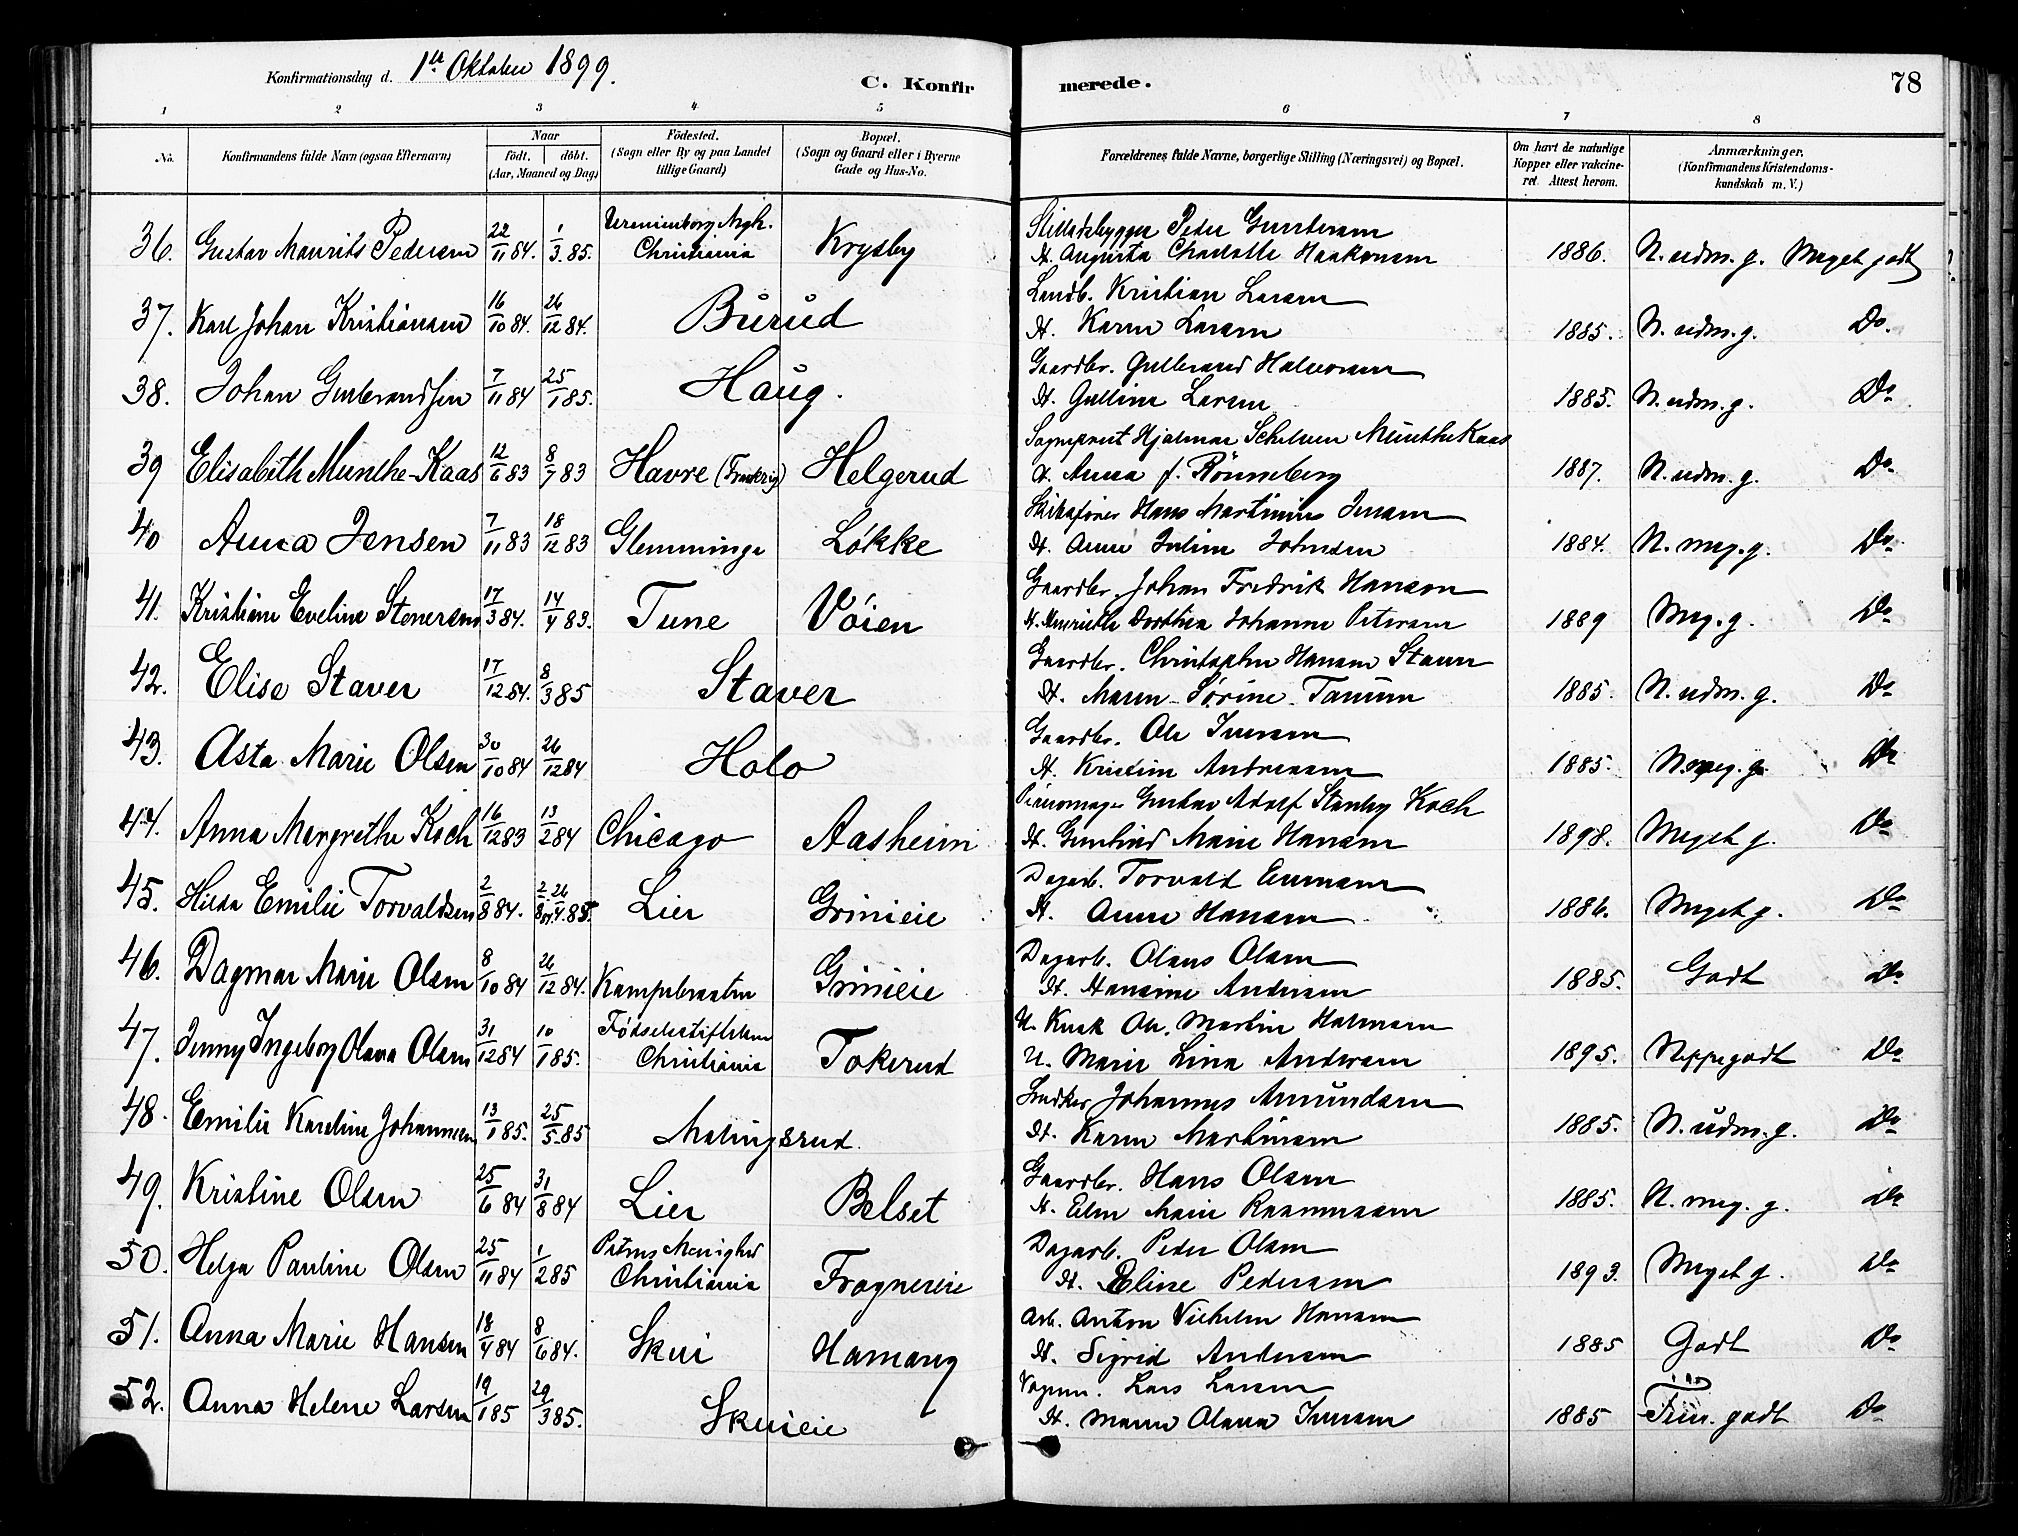 Konfirmationsdag d. 1ste Oktober 1899.
C. Konfirmerede.
78
1 2 3 4 5 6 7 8
No. Konfirmandens fulde Navn (ogsaa Efternavn)
Naar födt. döbt. (Aar, Maaned og Dag)
Födested. (Sogn eller By og paa Landet tillige Gaard)
Bopæl. (Sogn og Gaard eller i Byerne Gade og Hus-No.
Forældrenes fulde Navne, borgerlige Stilling (Næringsvei) og Bopæl.
Om havt de naturlige Kopper eller vakcineret. Attest herom.
Anmærkninger. (Konfirmandens Kristendomskundskab m. V.)
36. Gustav Maurits Pedersen 22/11 84. 1/3. 85. Christiania Krysby Peder Gundersen
H. Augusta Charlotte Haakonsen 1886. N. udm. g. Meget godt
37. Karl Johan Kristiansen 16/10 84. 26/12 84. Burud Landb. Kristian Larsen
H. Karen Larsen 1885. N. udm. g. Do.
38. Johan Gulbrandsen 7/11 84 25/1 85. Haug. Gaardbr. Gulbrand Halvorsen
H. Gulline Larsen 1885. N. udm. g. Do
39 Elisabeth Munthe-Kaas 12/6 83 8/7 83 Havre (Frankrig) Helgerud Sogneprest Hjalmar Munthe Kaas
H. Anna f. Rönneberg 1887. N. udm. g. Do
40 Anna Jensen 7/11 83 18/12 83 Glemminge Løkke Skibsfører Hans Martinius Jensen
H. Anne Juline Johnsen 1884. N. meg. g. Do
41. Kristiane Eveline Stenersen 17/3 84. 14/4 83. Tune Vöien Gaardbr. Johan Fredrik Hansen
H. Henriette Dorthea Johanne Petersen 1889 Meg. g. Do
42. Elise Staver 17/12 84. 8/3 85 Staver Gaardbr. Christopher Hansen Staver
H. Maren Sørine Tanum 1885. N. udm. g. Do
43. Asta Marie Olsen 30/10 84 26/12 84 Holo Gaardbr. Ole Iversen
H. Kristine Andreasen 1885. N. meg. g. Do
44. Anna Margrethe Koch 16/12 83 13/2 84 Chicago Aasheim Pianomager Gustav Adolf Stanley Koch
H. Marie Hansen 1898. Meget g. Do
45. Hilda Emilie Torvaldsen 2/8 84. 26/4. 85. Lier Grinieie Dagarb. Torvald
H. Anne Hansen 1886. Meget g. Do
46. Dagmar Marie Olsen 8/10 84 26/12 84. Kampebraaten Grinieie Dagarb. Olaus Olsen
H. Hansine Andersen 1885. Godt Do
47. Jenny Ingeborg Olava Olsen 31/12 84 10/1 85. Födselsstiftelsen Christiania Tokerud U. Knek Ole Martin Halvorsen
U. Marie Lina Andersen 1895. Neppe godt Do
48. Emilie Karoline Johannesen 13/1 85. 25/5. 85 Malingsrud. Johannes Amundsen
H. Karen Martinsen 1885. N. udm. g. Do
49. Kristine Olsen 25/6 84 31/8 84 Lier Belset Gaardbr. Hans Olsen
H. Elen Marie Rasmussen 1885. N. meg. g. Do
50. Helga Pauline Olsen 25/11 84 1/2 85 Petrus Menighed Christiania Frognereie Dagarb. Peder Olsen
H. Eline Pedersen 1893. Meget g. Do
51. Anna Marie Hansen 18/4 84 8/6 84. Skui Hamang Arb. Anton Vilhelm Hansen
H. Sigrid Andersen 1885 Godt Do
52. Anna Helene Larsen 19/1 85 29/3 85. Skuieie Lars Larsen
H. Maren Olava Iversen 1885 godt Do